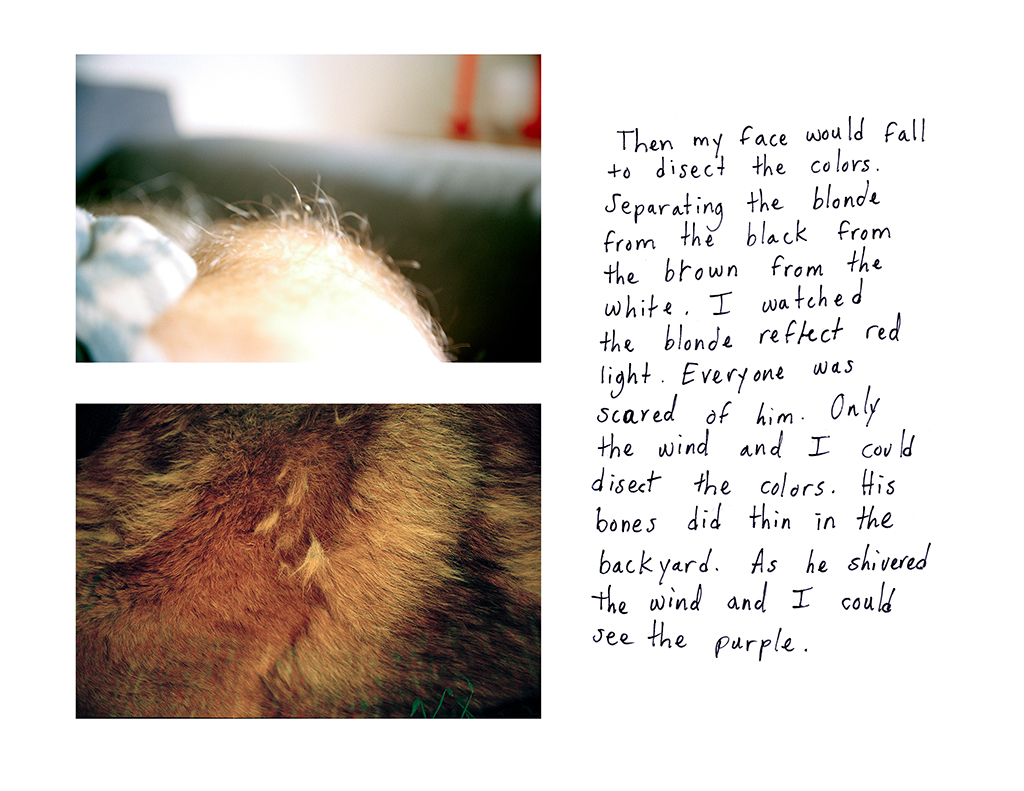 Then my face would fall
to disect the colors.
Separating the blonde
from the black from
the brown from the
white. I watched
the blonde reflect red
light. Everyone was
scared of him. Only
the wind and I could
disect the colors. His
bones did thin in the
backyard. As he shivered
the wind and I could
see the purple.